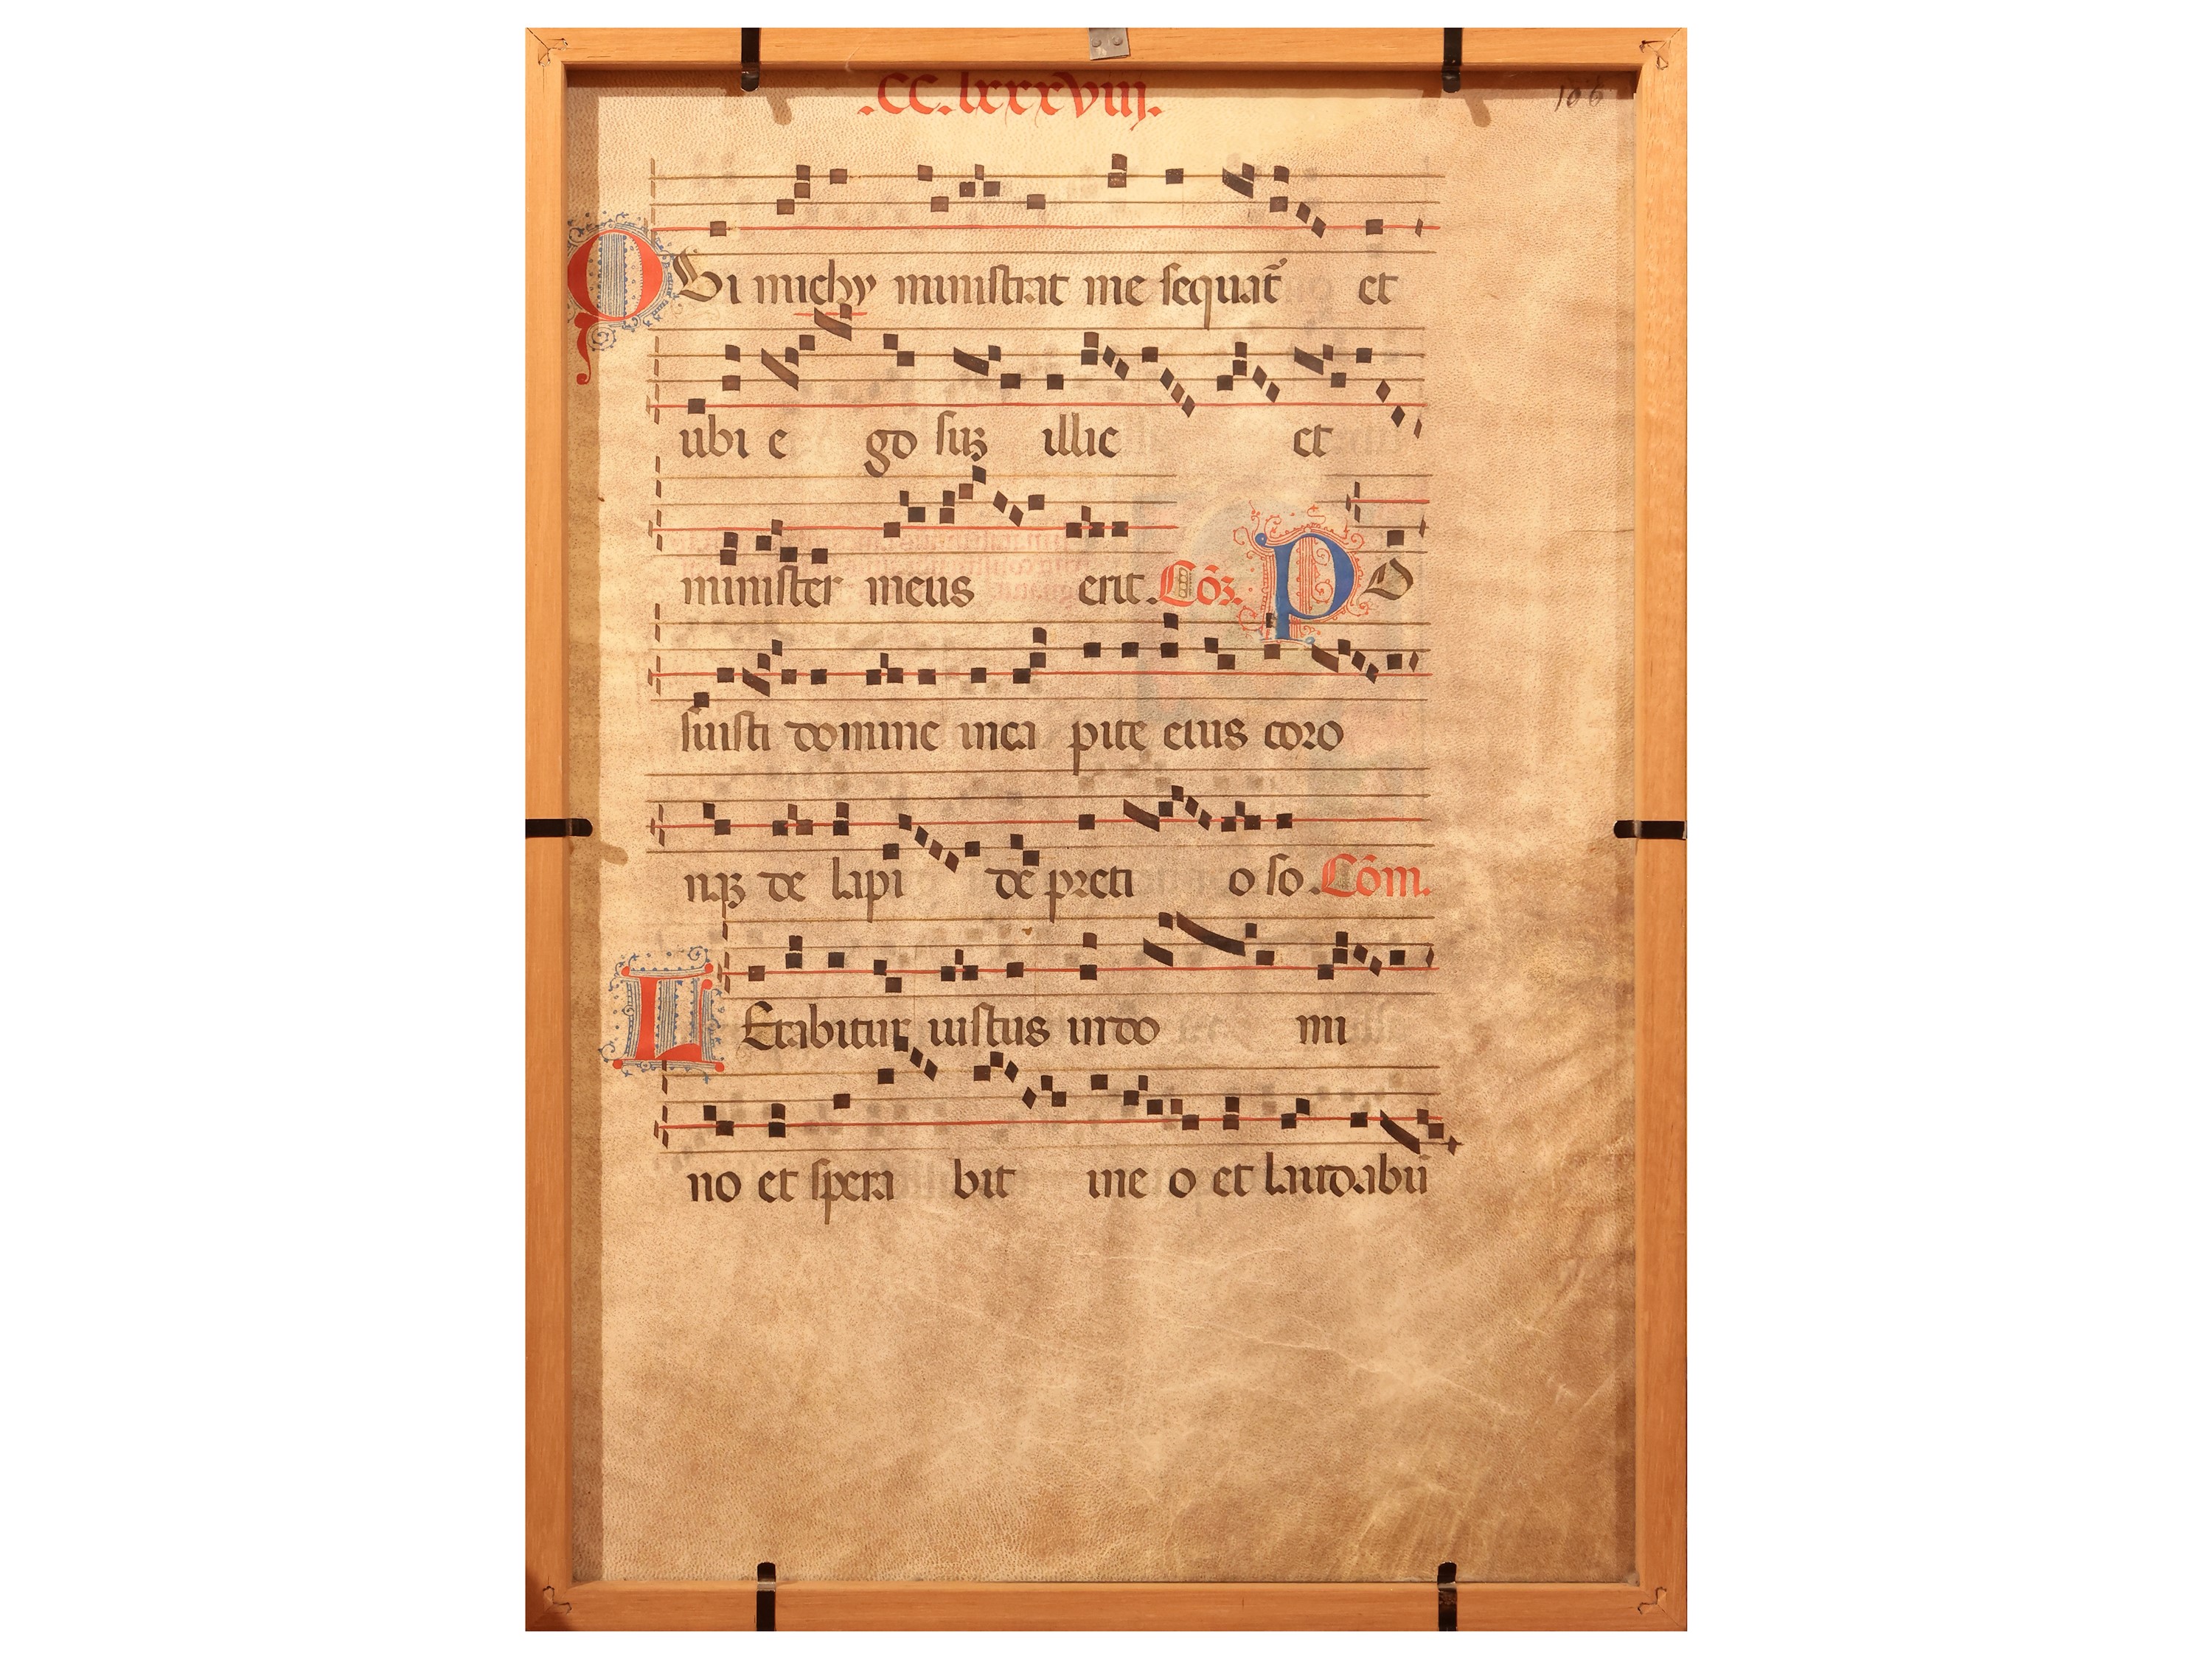 .CC.lxxxviij.
106
QSi michy ministrat me sequat̄ et
ubi e go suʒ illic et
minister meus erit. Cōʒ. PO
suisti domine inca pite eius coro
naʒ de lapi de preti o so. Cōm.
LEtabitur iustus indo mi
no et spera bit ine o et laudabū